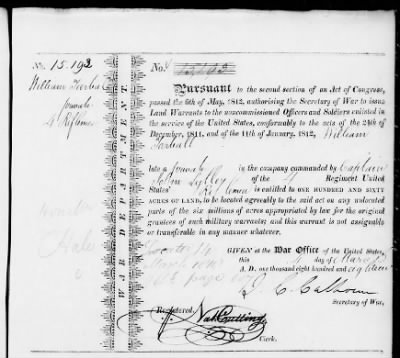 No. 15.192
William
private
4 Riflemen
WAR DEPARTMENT.
No.
Pursuant to the second section of an Act of Congress,
passed the 6th of May, 1812, authorising the Secretary of War to issue
Land Warrants to the noncommissioned Officers and Soldiers enlisted in
the service of the United States, conformably to the acts of the 24th of
December, 1811, and of the 11th of January, 1812, William
late a private in the company commanded by Captain
John of the 4 Regiment United
States' Riflemen is entitled to ONE HUNDRED AND SIXTY
ACRES OF LAND, to be located agreeably to the said act on any unlocated
parts of the six millions of acres appropriated by law for the original
grantees of such military warrants; and this warrant is not assignable
or transferable in any manner whatever.
GIVEN at the War Office of the United States,
this day of March
A. D. one thousand eight hundred and eighteen
J. C. Calhoun
Secretary of War,
Registered.
Nath Cutting
Clerk.